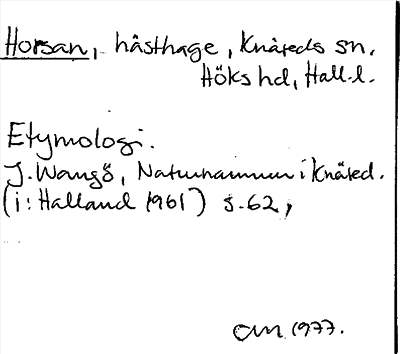 Horsan, hästhage, Knäreds sn.
Höks hd, Hall.l.
Etymologi.
J. Wangö, Naturnamnen i Knäred.
(i: Halland 1961) s.62,
CM 1977.